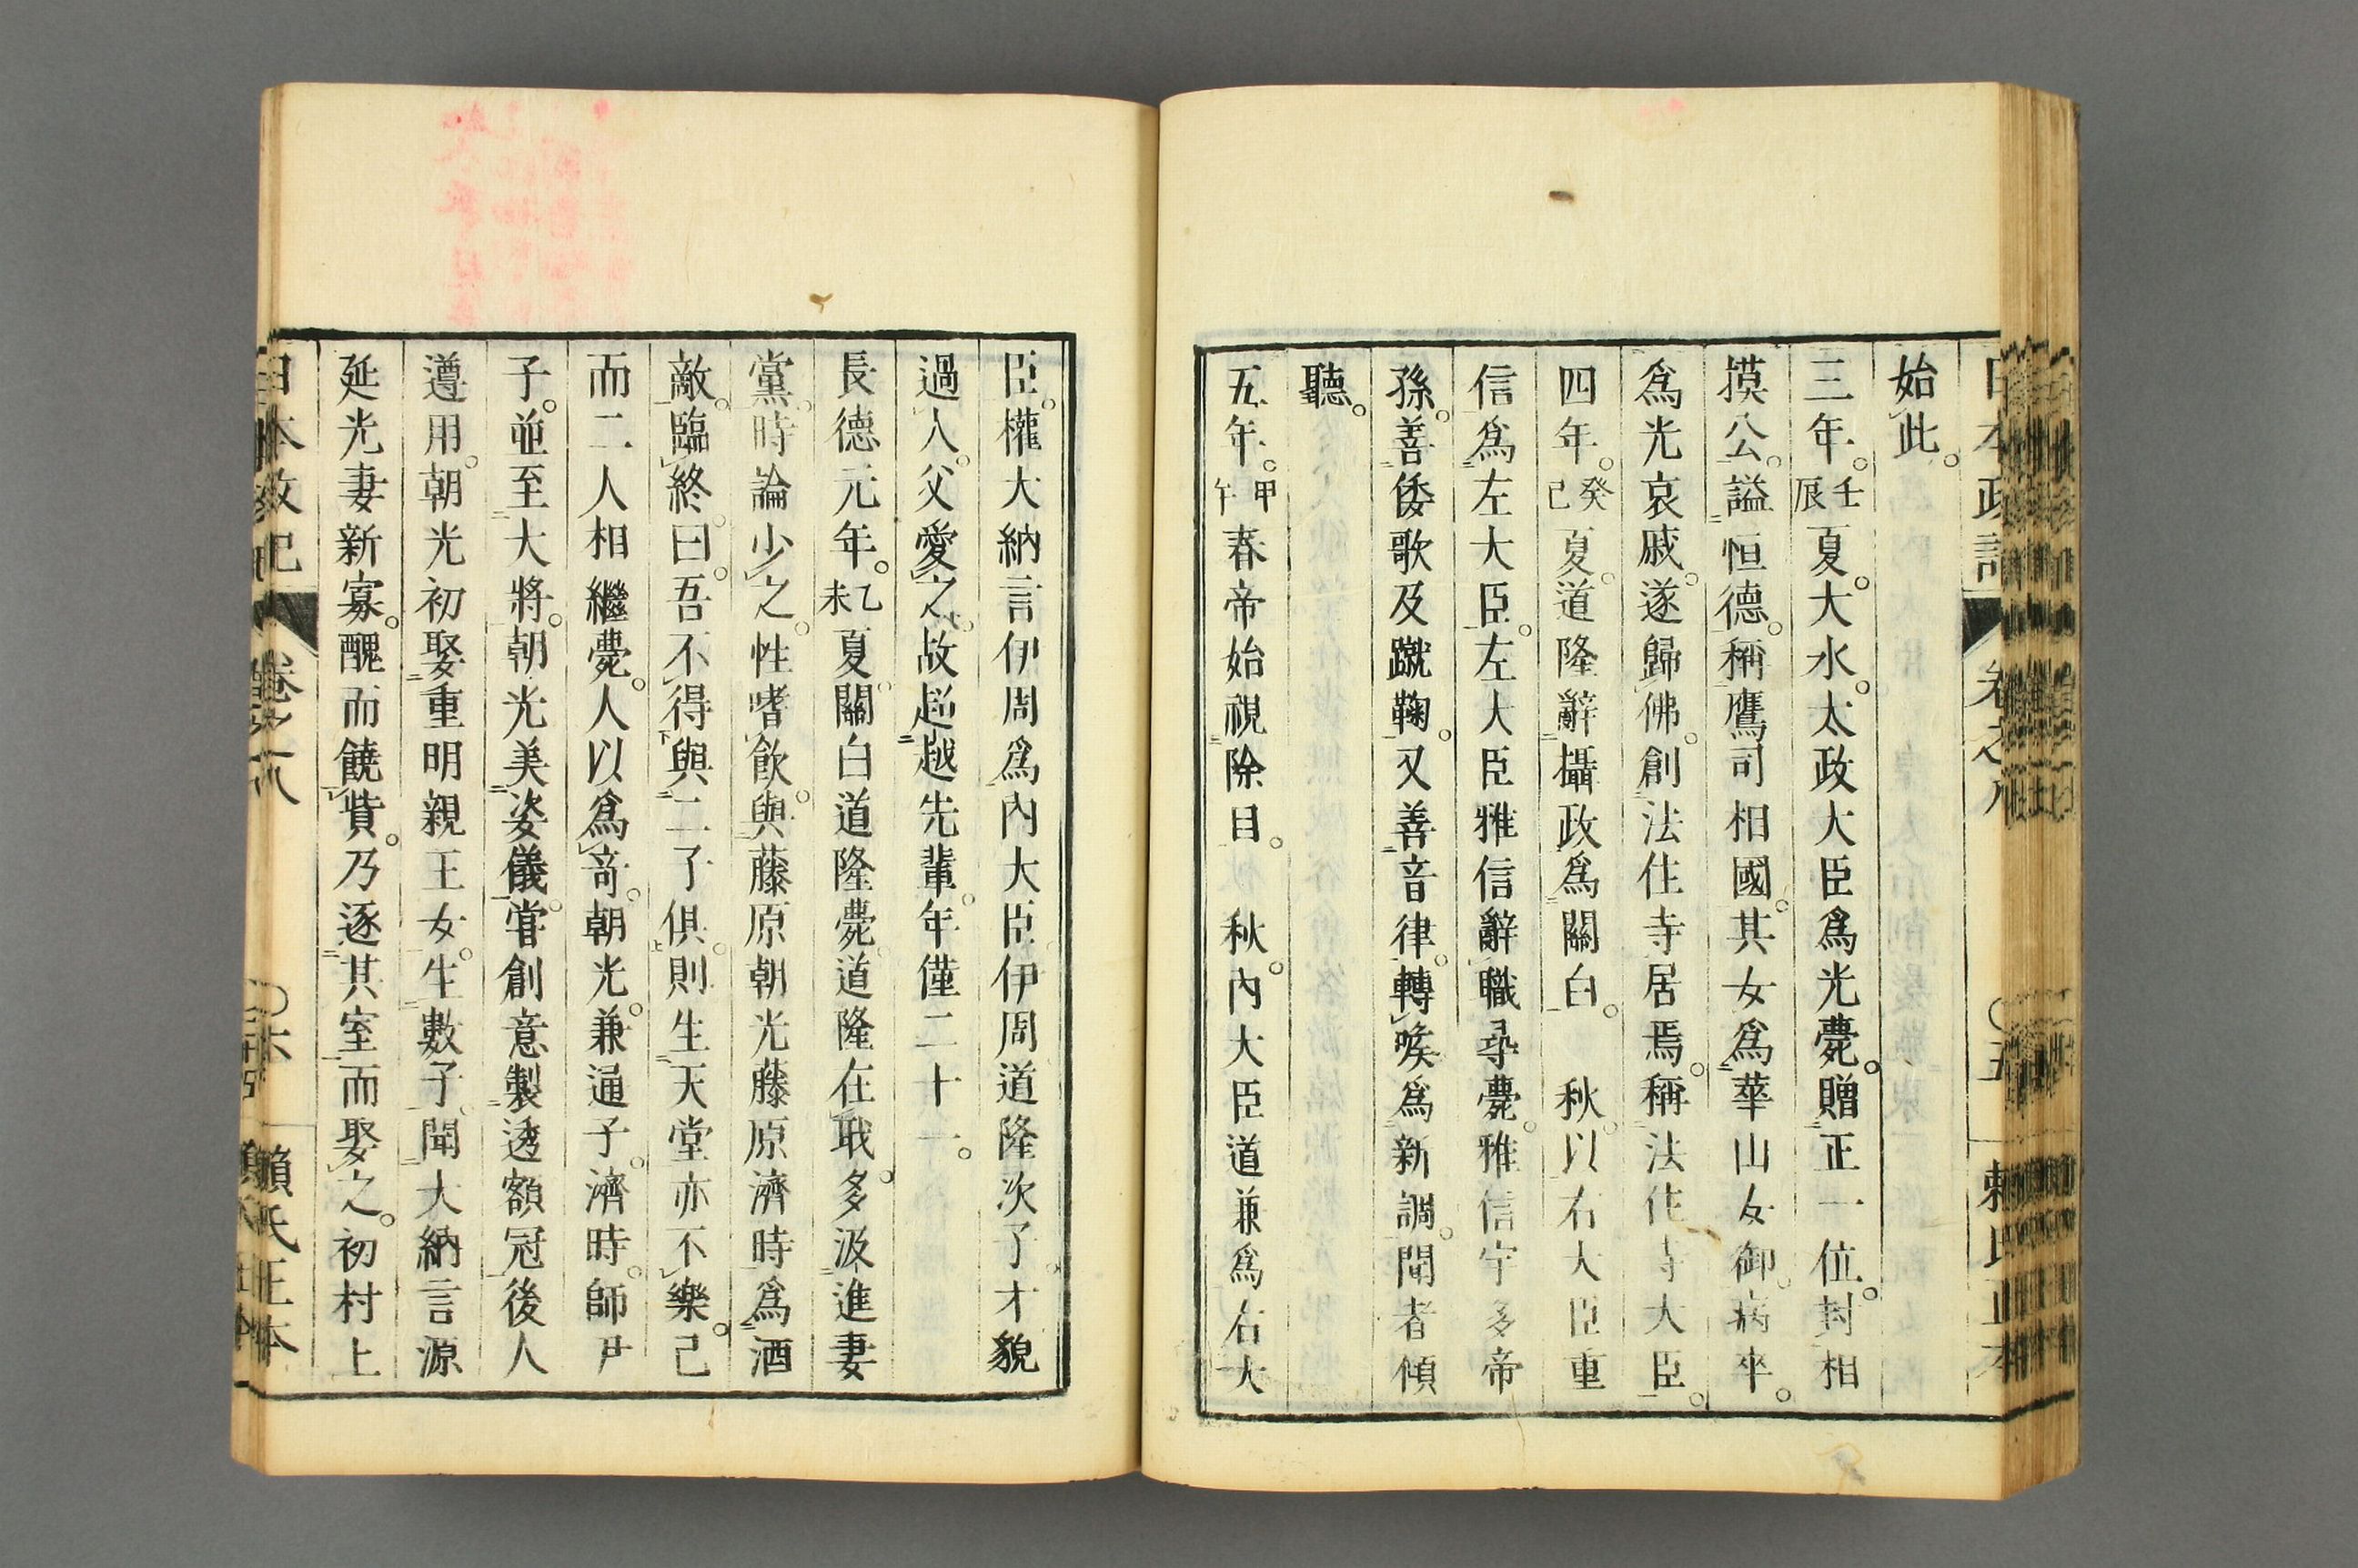 日本政記 卷之八 ○五 賴氏正本
始此。
三年。壬辰夏。大水。太政大臣爲光薨。贈正一位。封相
摸公。謚恒德。稱鷹司相國。其女爲華山女御。病卒。
爲光哀戚。遂歸佛。創法住寺居焉。稱法住寺大臣。
四年。癸巳夏。道隆辭攝政爲關白。秋。以右大臣重
信爲左大臣。左大臣雅信辭職尋薨。雅信宇多帝
孫。善倭歌及蹴鞠。又善音律。轉喉爲新調。聞者傾
聽。
五年。甲午春帝始視除目。秋。內大臣道兼爲右大
臣。權大納言伊周爲內大臣。伊周道隆次子。才貌
過人。父愛之。故超越先輩。年僅二十一。
長德元年。乙未夏。關白道隆薨。道隆在職。多汲進妻
黨。時論少之。性嗜飮。與藤原朝光藤原濟時爲酒
敵。臨終。曰。吾不得與二子俱。則生天堂亦不樂。已
而二人相繼薨。人以爲奇。朝光。兼通子。濟時。師尹
子。竝至大將。朝光美姿儀。嘗創意製透額冠後人
遵用。朝光初娶重明親王女。生數子。聞大納言源
延光妻新寡。醜而饒貲。乃逐其室而娶之。初村上
日本政記 卷之八 ○六 賴氏正本